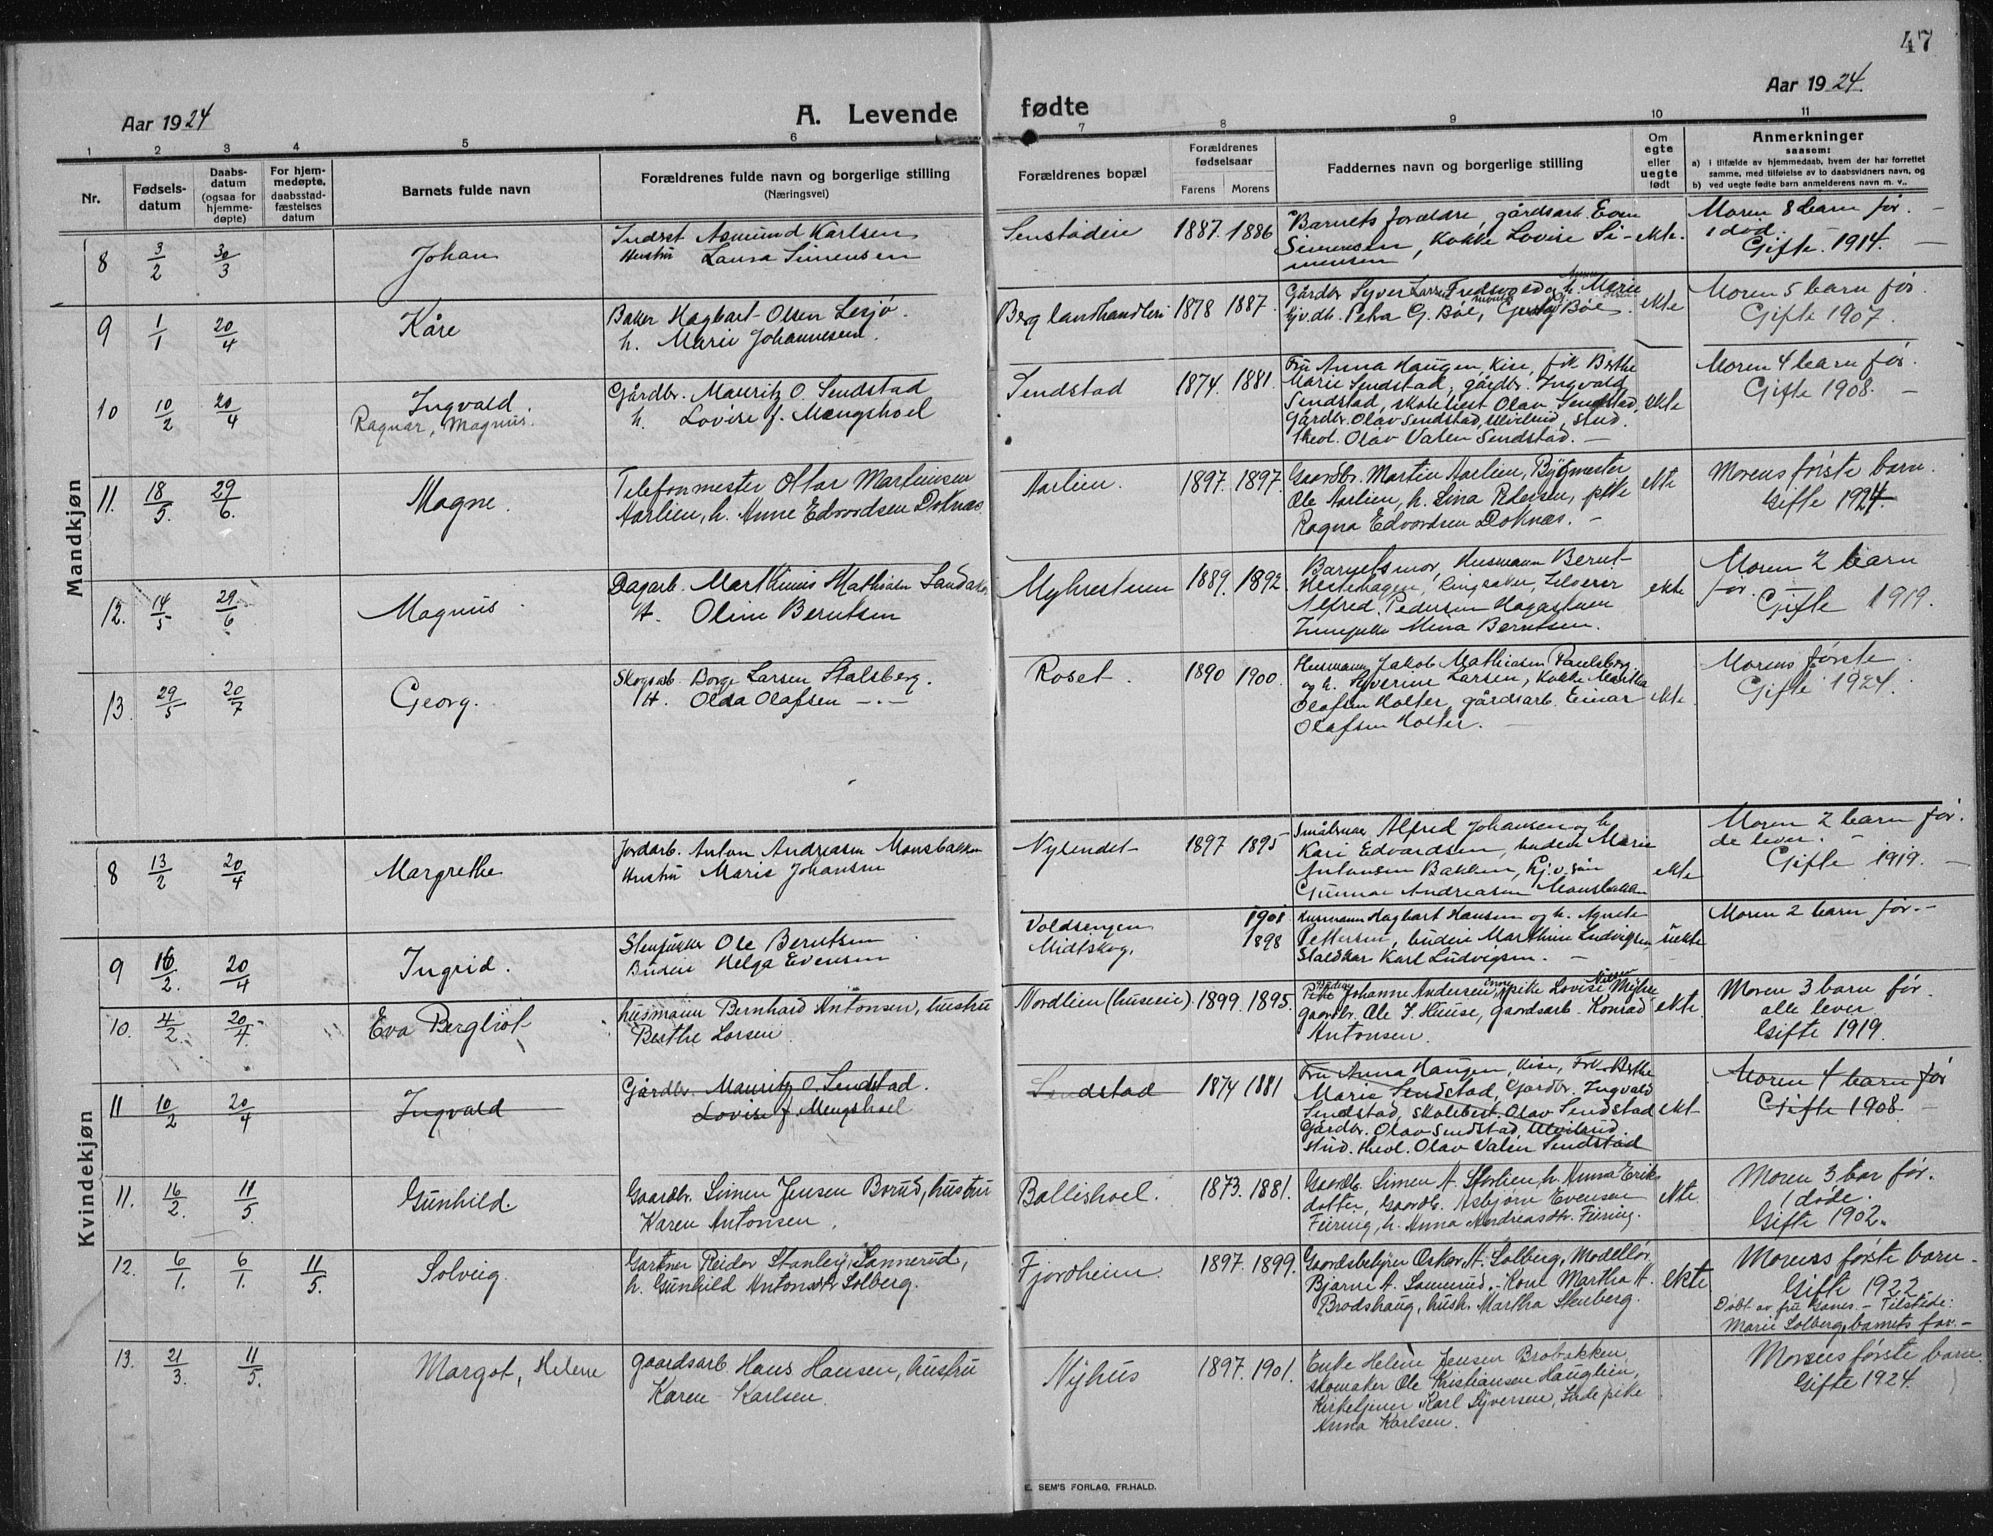 47
Aar 1924
A. Levende fødte
Aar 1924.
1 2 3 4 5 6 7 8 9 10 11
Nr.
Fødsels-
datum
Daabs-
datum
(ogsaa for
hjemme-
døpte)
For hjem-
medøpte,
daabsstad-
fæstelses
datum
Barnets fulde navn
Forældrenes fulde navn og borgerlige stilling
(Næringsvei)
Forældrenes bopæl
Forældrenes
fødselsaar
Farens Morens
Faddernes navn og borgerlige stilling
Om
egte
eller
uegte
født
Anmerkninger
saasom:
a) i tilfælde av hjemmedaab, hvem der har forrettet
samme, med tilføielse av to daabsvidners navn, og
b) ved uegte fødte barn anmelderens navn m. v..
Mandkjøn
8 3/2 30/3 Johan
Indst Asmund Karlsen
Hustru Laura Simensen
1887. 1886
Barnets forældre, gårdsarb. Even
Simensen, Kokke Lovise Si-
mensen
ekte.
Moren 8 barn før.
1 død.
Gifte 1914.
9 1/1 20/4 Kåre
Baker Hagbart Olsen Lesjø.
h. Marie Johannesen.
Berg landhandleri 1878 1887.
Gårdbr. Syver Larsen h. Marie
Petra G. Bøe, Bøe.
ekte
Moren 5 barn før.
Gifte 1907.
10 10/2 20/4 Ingvald
Ragnar, Magnus.
Gårdbr. Mauritz O. Sendstad
h. Lovise f. Mengshoel
Sendstad 1874. 1881.
Fru Anna Haugen, Kise, frk Berthe
Marie Sendstad, gårdbr. Ingvald
Sendstad, skolebest Olav Sendstad,
Gårdbr. Olav Sendstad, Ulvilrud, stud.
theol. Olav Valen Sendstad. —
ekte
Moren 4 barn før.
Gifte 1908. —
11. 18/5. 29/6. Magne.
Telefonmester Ottar Martinsen
Aarlien, h. Anne Edvardsen Doknæs.
Aarlien. 1897. 1897.
Gaardbr. Martin Aarlien, Bygmester
Ole Aarlien, h. Lina Pedersen, pike
Ragna Edvardsen Doknæs. —
ekte
Morens første barn.
Gifte 1924.
12. 14/5 29/6 Magnus.
Dagarb. Marthinus Mathisen
H. Oline Berntsen
Myhrestuen 1889. 1892
Barnets mor, Husmann Bernt
Hestehagen, Ringsaker,
Alfred Pedersen Hagastuen
Mina Berntsen.
ekte
Moren 2 barn
før. —
Gifte 1919.
13. 29/5 20/7 Georg.
Skogsarb Borge Larsen Stalsberg.
H. Olda Olafsen —.—
Roset. 1890 1900.
Husmann Jakob Mathiasen Paulsberg
og h. Syverine Larsen, Kokke Martha
Olafsen Holter, gårdsarb. Einar
Olafsen Holter. —
ekte.
Morens første.
Gifte 1924.
Kvindekjøn
8 13/2 20/4 Margrethe
Jordarb. Anton Andreasen Monsbakken
Hustru Marie Johansen
Nylendet 1897 1895
Alfred Johansen og h.
Kari Edvardsen, budeie Marie
Antonsen Bakken,
Gunnar Andreasen Monsbakken
ekte
Moren 2 barn før.
de lever. —
Gifte 1919. —
9 16/2. 20/4 Ingrid.
Ole Berntsen
Budeie Helga Evensen
Voldsengen 1901
Midtskog, 1898
Husmann Hagbart Hansen og h. Agnete
Pettersen, budeie Marthine Ludvigsen
Staldkar Karl Ludvigsen. —
uekte
Moren 2 barn før. —
10. 4/2. 20/4. Eva Bergliot
husmann Bernhard Antonsen, hustru
Berthe Larsen.
Nordlien (huseie). 1899. 1895.
Pike Johanne Andersen, pike Lovise Myhre
gaardbr. Ole J. Huuse, gaardsarb. Konrad
Antonsen.
ekte.
Moren 3 barn før.
alle lever
Gifte 1919.
11 10/2 20/4 Ingvald
Gårdbr. Mauritz O. Sendstad.
Lovise f. Mengshoel
Sendstad 1874 1881
Fru Anna Haugen, Kise, Frk. Berthe
Marie Sendstad, Gårdbr. Ingvald
Sendstad, skolebest. Olav Sendstad
Gårdbr. Olav Sendstad, Ulvilrud.
stud. theol. Olav Valen Sendstad
ekt
Moren 4 barn før
Gifte 1908. —
11. 16/2. 11/5 Gunhild.
Gaardbr. Simen Jensen Borud, hustru
Karen Antonsen.
Ballishoel. 1873. 1881.
Gaardb. Simen A. Storlien, h. Anna Erik-
datter, Gaardb. Asbjørn Evensen
Feiring, h. Anna Andreasdtr. Feiring.
ekte.
Moren 3 bar før.
1 døde.
Gifte 1902.
12. 6/1. 6/1. 11/5. Solveig.
Gartner Reidar Stanley Sannerud,
h. Gunhild Antonsdtr Solberg.
Fjordheim. 1897. 1899.
Gaardsbestyrer Oskar A. Solberg, Modellør
Bjarne A. Sannerud, — Kone Martha A.
Brodshaug, hush. Martha Stenberg.
ekte
Morens første barn —
Gifte 1922
Døbt av fru Ganes. — Tilstede:
Marie Solberg, barnets far. —
13. 21/3. 11/5. Margot, Helene
gaardsarb Hans Hansen, hustru
Karen Karlsen.
Nyhus 1897. 1901.
Enke Helene Jensen Brobakken,
skomaker Ole Kristiansen Hauglien,
Kirketjener Karl Syversen, pike
Anna Karlsen.
Morens første barn.
Gifte 1924.
E. SEM'S FORLAG, FR.HALD.